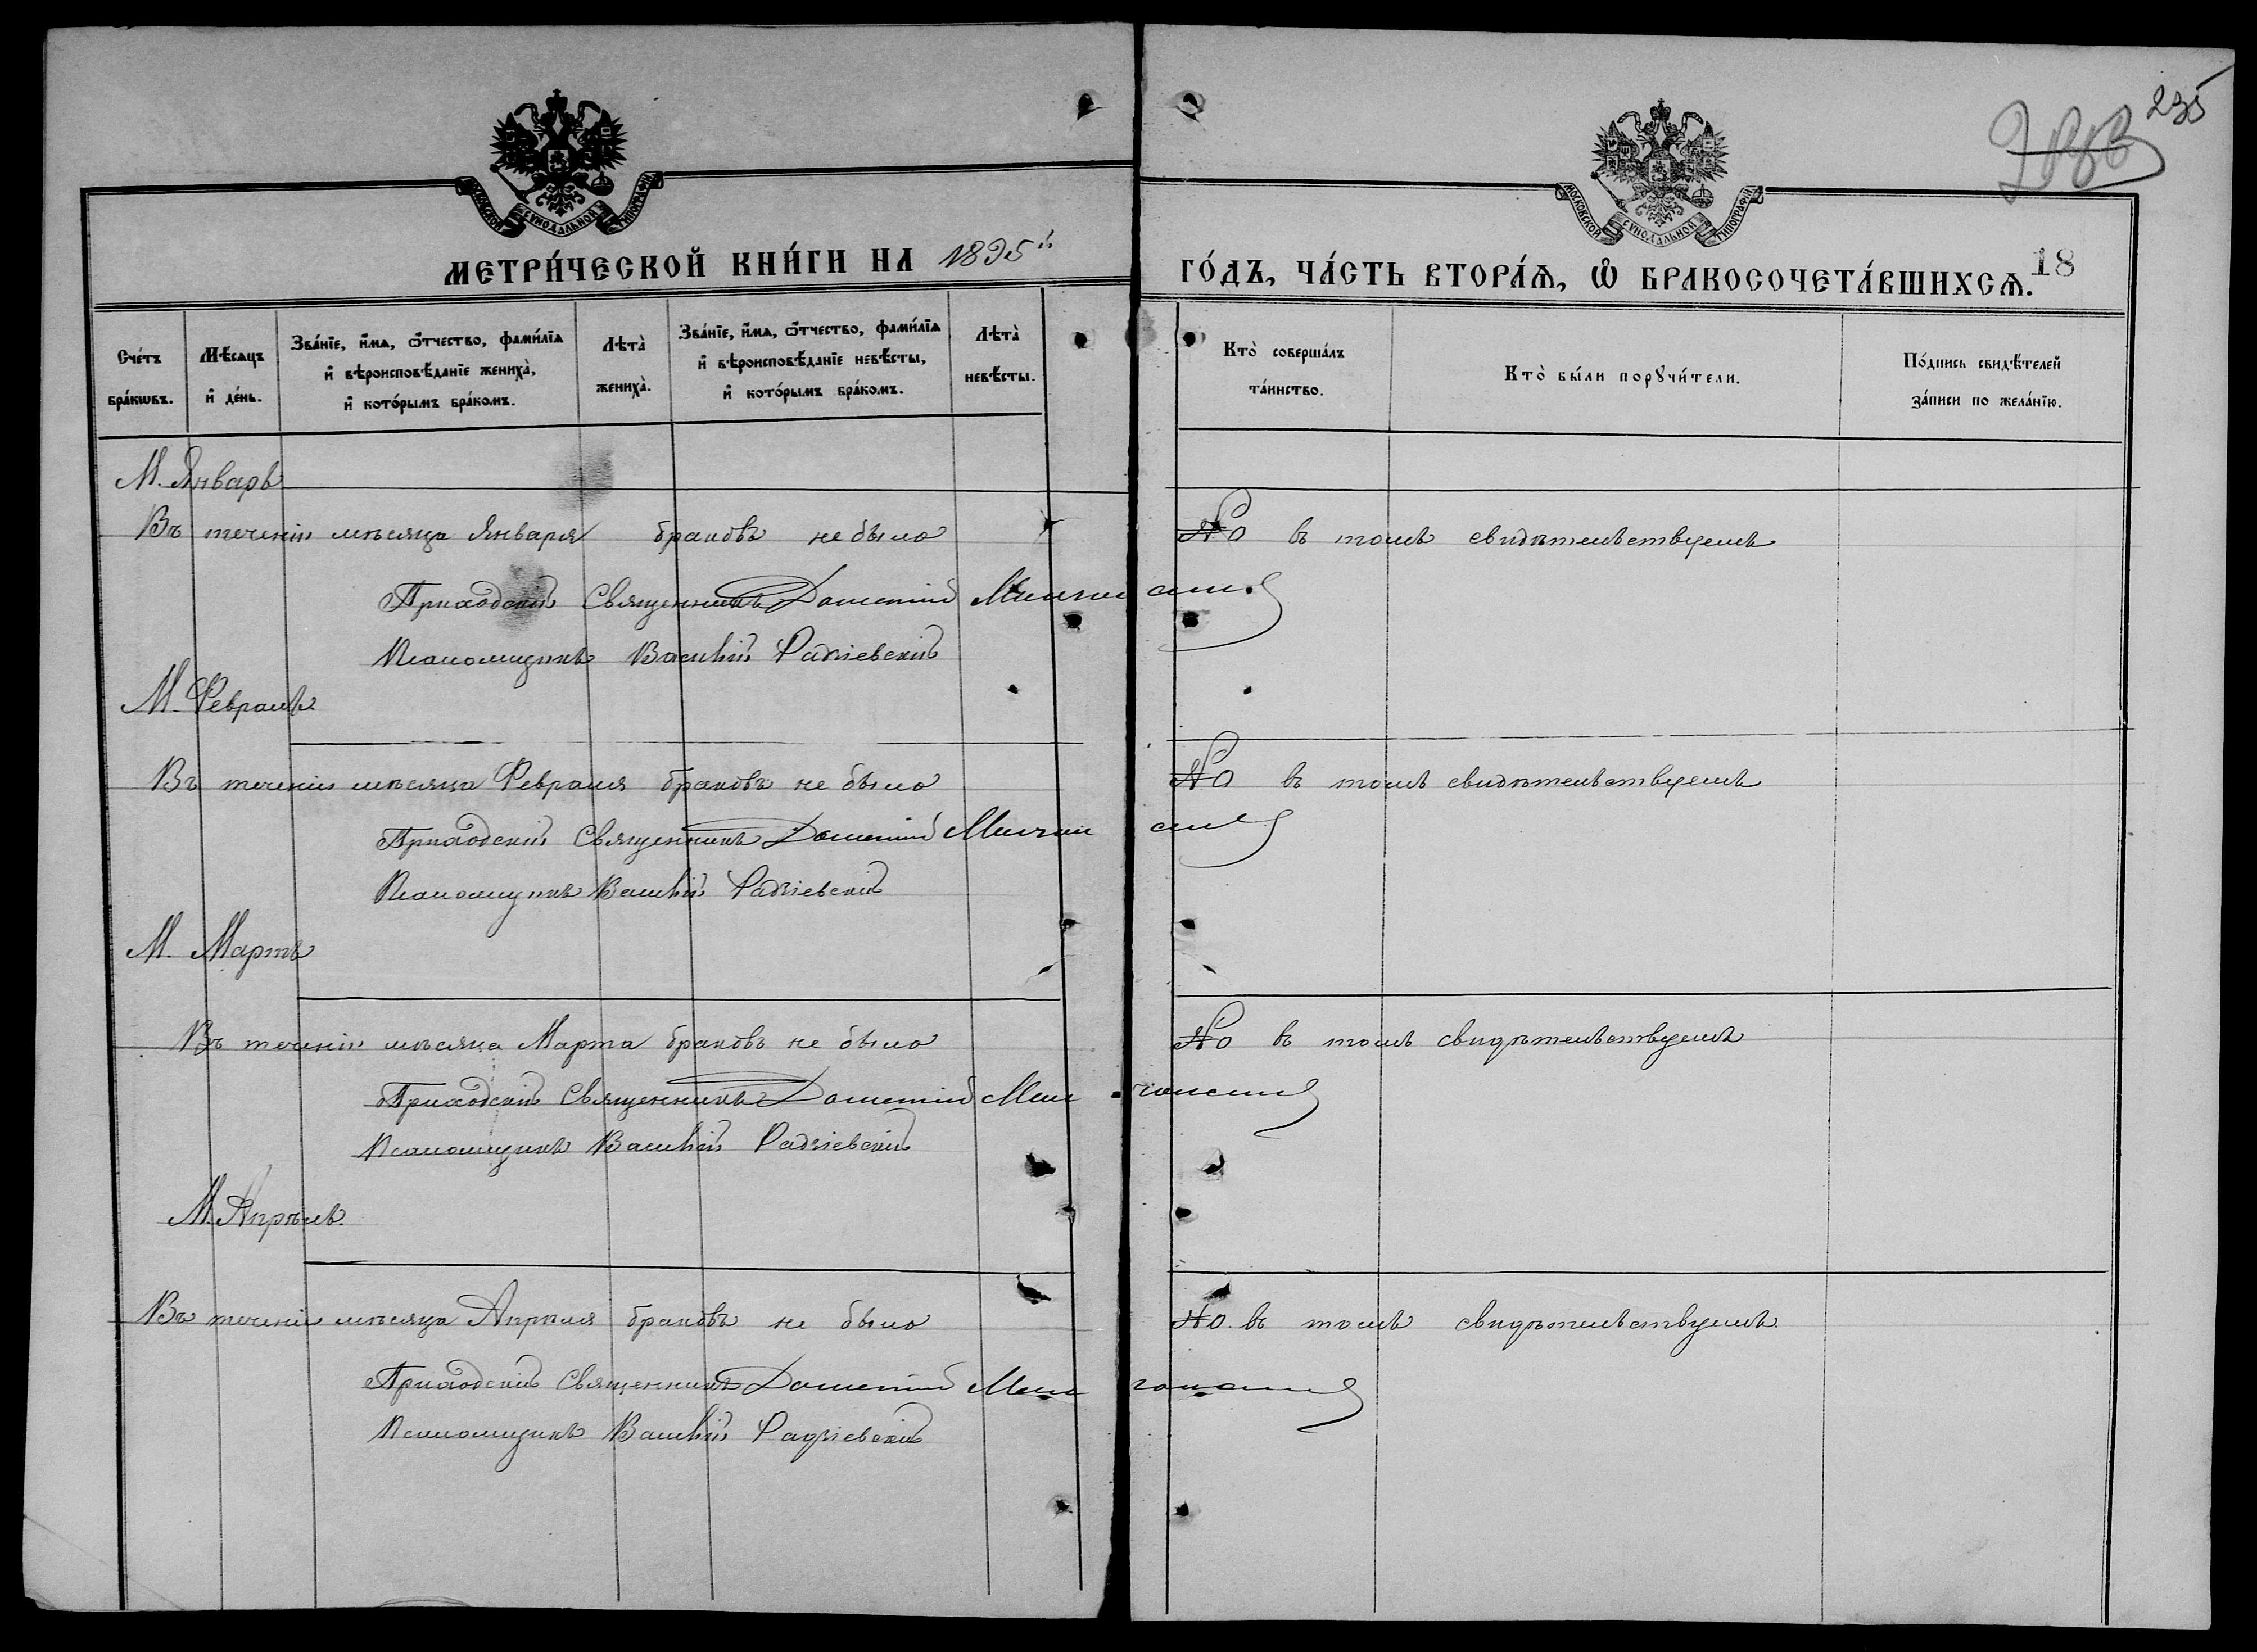 235
МОСКОВСКОЙ СѴНОДАЛЬНОЙ ТИПОГРАФІИ
МОСКОВСКОЙ СѴНОДАЛЬНОЙ ТИПОГРАФІИ
МЕТРИ́ЧЕСКОЙ КНИ́ГИ НА 1895й ГО́ДЪ, ЧА́СТЬ ВТОРА́Ѧ, Ѿ БРАКОСОЧЕТА́ВШИХСѦ. 18
Сче́тъ бра́кѡвъ.
Мѣ́сяцъ и҆ де́нь.
Зва́нїе, и҆́мѧ, ѻ҆́тчество, фами́лїѧ и҆ вѣроисповѣ́данїе жениха̀, и҆ кото́рымъ бра́комъ.
Лѣта̀ жениха̀.
Зва́нїе, и҆́мѧ, ѻ҆́тчество, фами́лїѧ и҆ вѣроисповѣ́данїе невѣ́сты, и҆ кото́рымъ бра́комъ.
Лѣта̀ невѣ́сты.
Кто̀ соверша́лъ та́инство.
Кто̀ бы́ли порꙋчи́тели.
По́дпись свидѣ́телей за́писи по жела́нїю.
М. Январь
Въ теченіи мѣсяца Января браковъ не было No въ томъ свидѣтельствуемъ
Приходскій Священникъ Дометій
Псаломщикъ Василій Радзіевскій
М. Февраль
Въ теченіи мѣсяца Февраля браковъ не было No въ томъ свидѣтельствуемъ
Приходскій Священникъ Дометій
Псаломщикъ Василій Радзіевскій
М. Мартъ
Въ теченіи мѣсяца Марта браковъ не было No въ томъ свидѣтельствуемъ
Приходскій Священникъ Дометій
Псаломщикъ Василій Радзіевскій
М. Апрѣль
Въ теченіи мѣсяца Апрѣля браковъ не было No въ томъ свидѣтельствуемъ
Приходскій Священникъ Дометій
Псаломщикъ Василій Радзіевскій